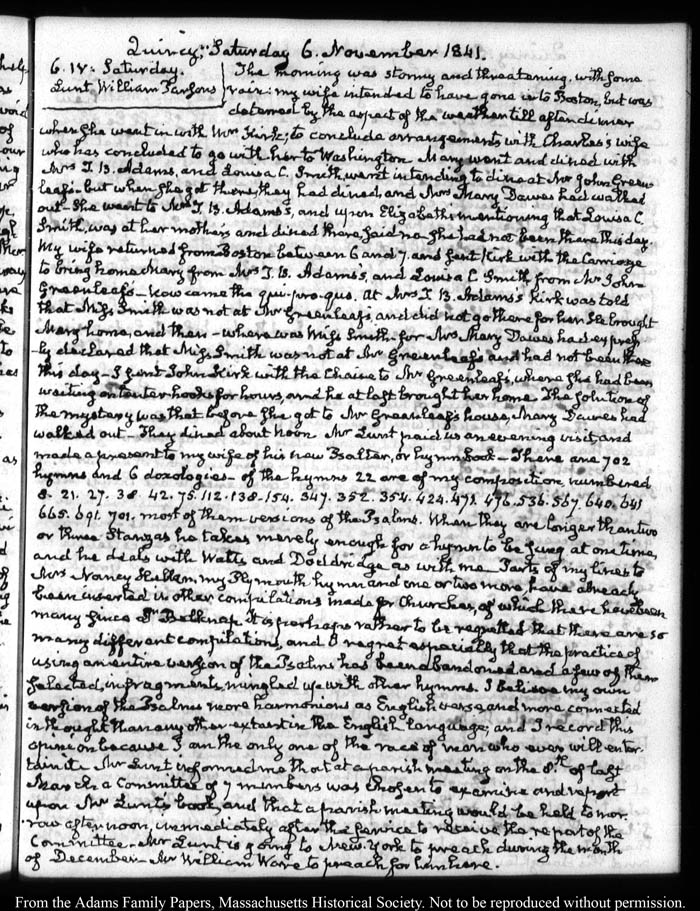 Quincy, Saturday 6. November 1841.
6. IV: Saturday.
Lunt William Parsons
The morning was stormy and threatening, with some
rain: my wife intended to have gone into Boston, but was
deterred by the aspect of the weather till after dinner
when she went in with Mrs Kirke; to conclude arrangements with Charles's wife
who has concluded to go with her to Washington. Mary went and dined with
Mrs T. B. Adams, and Louisa C. Smith, went intending to dine at Mr John Green
leafs - but when she got there, they had dined, and Mrs Mary Dawes had walked
out - She went to Mrs T. B. Adams's, and upon Elizabeth mentioning that Louisa C.
Smith, was at her mothers and dined there, said no she had not been there this day.
My wife returned from Boston between 6 and 7. and sent Kirk with the Carriage
to bring home Mary from Mrs T. B. Adams's, and Louisa C Smith from Mr John
Greenleafs - Now came the qui-pro-quo. At Mrs T B. Adams's Kirk was told
that Miss Smith was not at Mr Greenleafs, and did not go there for her. He brought
Mary home, and then - where was Miss Smith - for Mrs Mary Dawes had express
-ly declared that Miss Smith was not at Mr Greenleafs and had not been there
this day - I sent John Kirk with the Chaise to Mr Greenleafs, where she had been
waiting on tenter-hooks for hours, and he at last brought her home. The solution of
the mystery was that before she got to Mr Greenleaf's house, Mary Dawes had
walked out - They dined about noon. Mr Lunt paid us an evening visit, and
made a present to my wife of his new Psalter, or hymn book - There are 702
hymns and 6 doxologies - of the hymns 22 are of my composition, numbered
8. 21. 27. 38. 42. 75. 112. 138. 154. 347. 352. 354. 424. 471. 476. 536. 567. 640. 641
665. 691. 701. most of them versions of the Psalms. When they are longer than two
or three Stanzas he takes merely enough for a hymn to be sung at one time,
and he deals with Watts and Doddridge as with me. Parts of my lines to
Mrs Nancy Hallam, my Plymouth hymn and one or two more have already
been inserted in other compilations made for Churches, of which there have been
many since Dr Belknap. It is perhaps rather to be regretted that there are so
many different compilations, and I regret especially that the practice of
using an entire version of the Psalms has been abandoned and a few of them
selected, in fragments, mingled up with other hymns. I believe my own
version of the Psalms more harmonious as English verse, and more connected
in thought than any other extant in the English language; and I record this
opinion because I am the only one of the race of man who ever will enter-
tain it. Mr Lunt informed me that at a parish meeting on the 8th of last
March a Committee of 7 members was chosen to examine and report
upon Mr Lunt's book, and that a parish meeting would be held to mor-
row afternoon, immediately after the service to receive the report of the
Committee. Mr Lunt is going to New York to preach during the month
of December - Mr William Ware to preach for him here.
From the Adams Family Papers, Massachusetts Historical Society. Not to be reproduced without permission.